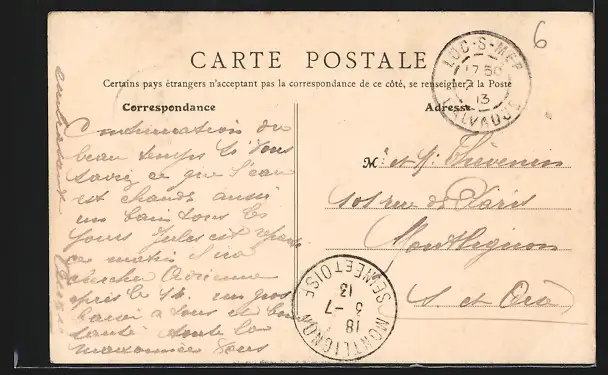 6
CARTE POSTALE
Certains pays étrangers n'acceptant pas la correspondance de ce côté, se renseigner à la Poste
Correspondance
Adresse
LUC-S-MER
17 50
13
CALVADOS
Continuation du
beau temps Si vous
saviez ce que l'eau
est chaude aussi
un bain tous les
jours Jules est reparti
ce matin
chercher Adrienne
après le 14. un gros
baiser à tous et bonne
santé toute la
maisonnée vous
embrassent
M. et Me Thévenin
101 rue de Paris
Montlignon
S. et Oise
MONTLIGNON
18
3 - 7
13
SEINE ET OISE